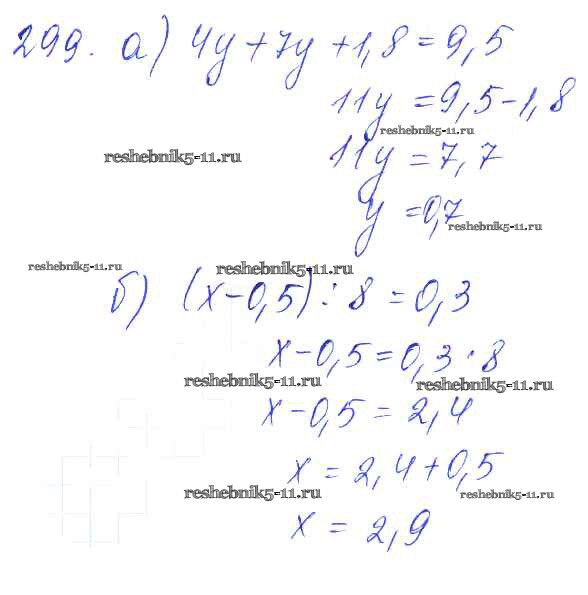 299. а) 4y + 7y + 1,8 = 9,5
11y = 9,5 - 1,8
reshebnik5-11.ru
reshebnik5-11.ru
11y = 7,7
y = 0,7
reshebnik5-11.ru
reshebnik5-11.ru
reshebnik5-11.ru
б) (x - 0,5) : 8 = 0,3
x - 0,5 = 0,3 · 8
reshebnik5-11.ru
reshebnik5-11.ru
x - 0,5 = 2,4
x = 2,4 + 0,5
reshebnik5-11.ru
reshebnik5-11.ru
x = 2,9